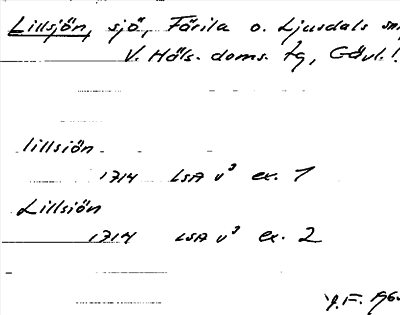 Lillsjön, sjö, Färila o. Ljusdals sn
V. Häls. doms. tg, Gävl. l.
lillsiön
1714 LSA v³ ex. 1
Lillsiön
1714 LSA v³ ex. 2